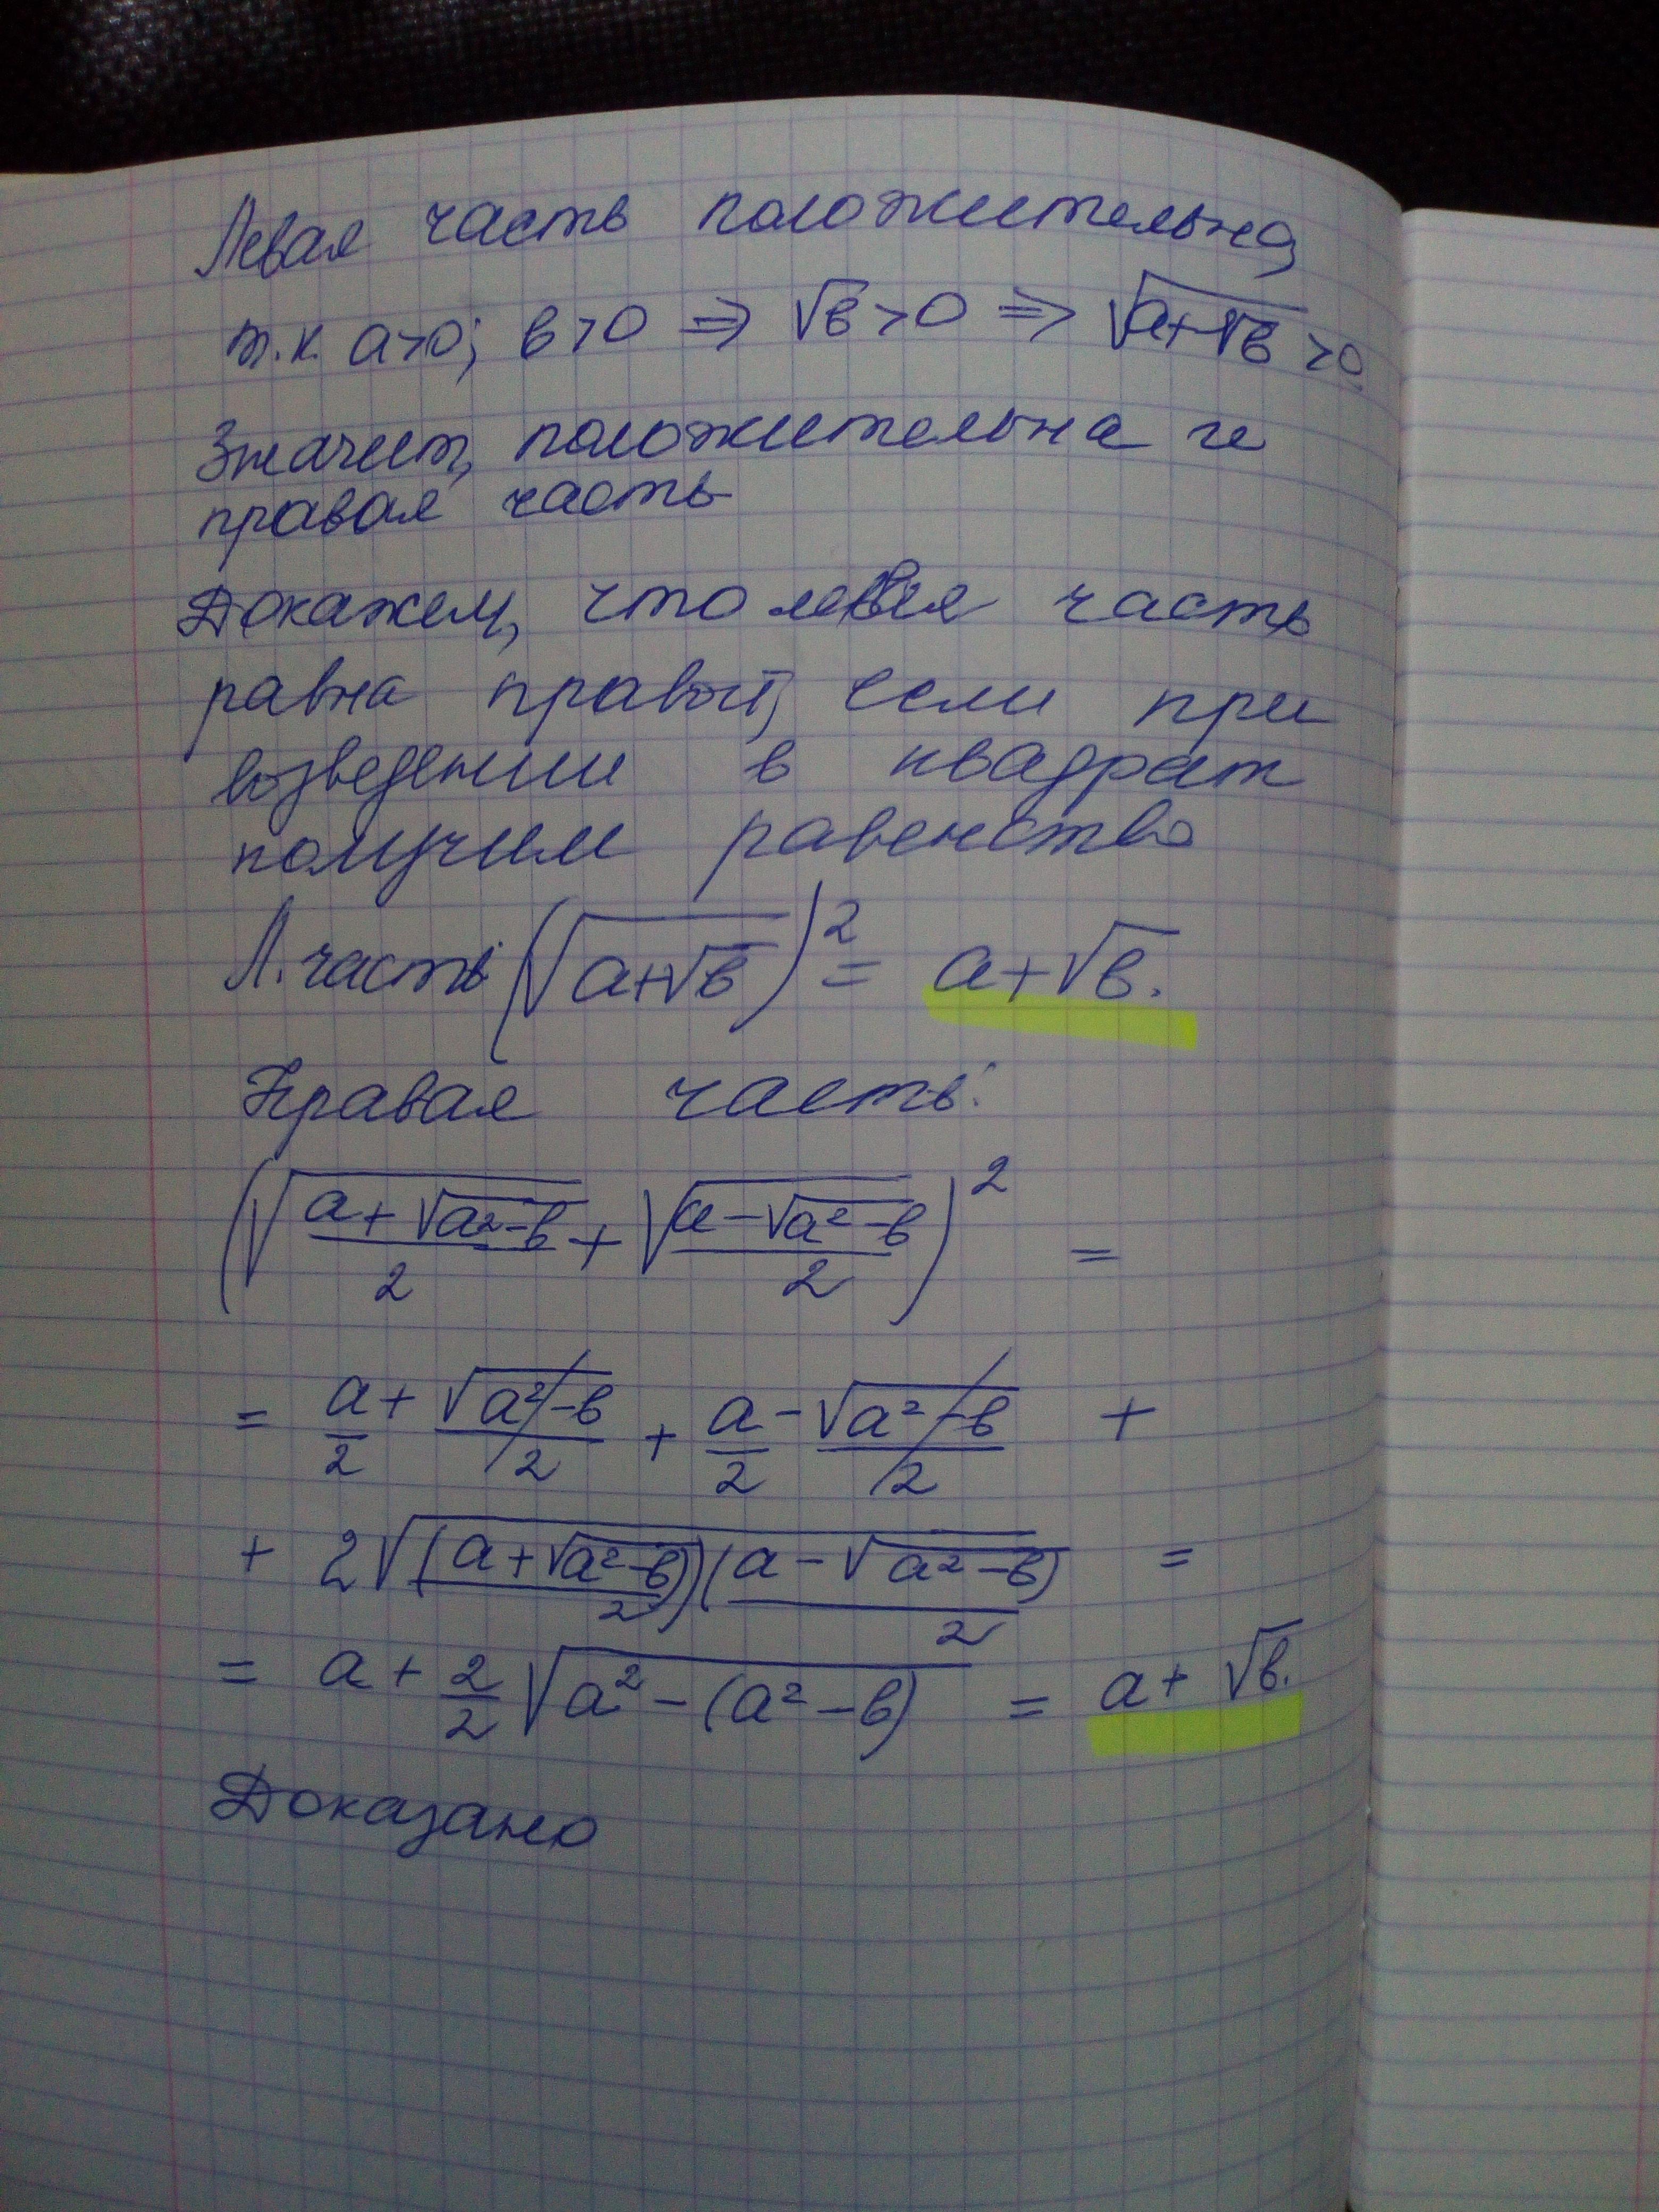 Левая часть положительна,
т.к. a>0; b>0 ⇒ √b>0 ⇒ √(a+√b)>0.
Значит, положительна и
правая часть
Докажем, что левая часть
равна правой, если при
возведении в квадрат
получим равенство
Л. часть (√(a+√b))² = a+√b.
Правая часть:
(√((a+√(a²-b))/2) + √((a-√(a²-b))/2))² =
= a/2 + √(a²-b)/2 + a/2 - √(a²-b)/2 +
+ 2√((a+√(a²-b))/2 (a-√(a²-b))/2) =
= a + 2/2 √(a²-(a²-b)) = a+√b.
Доказано